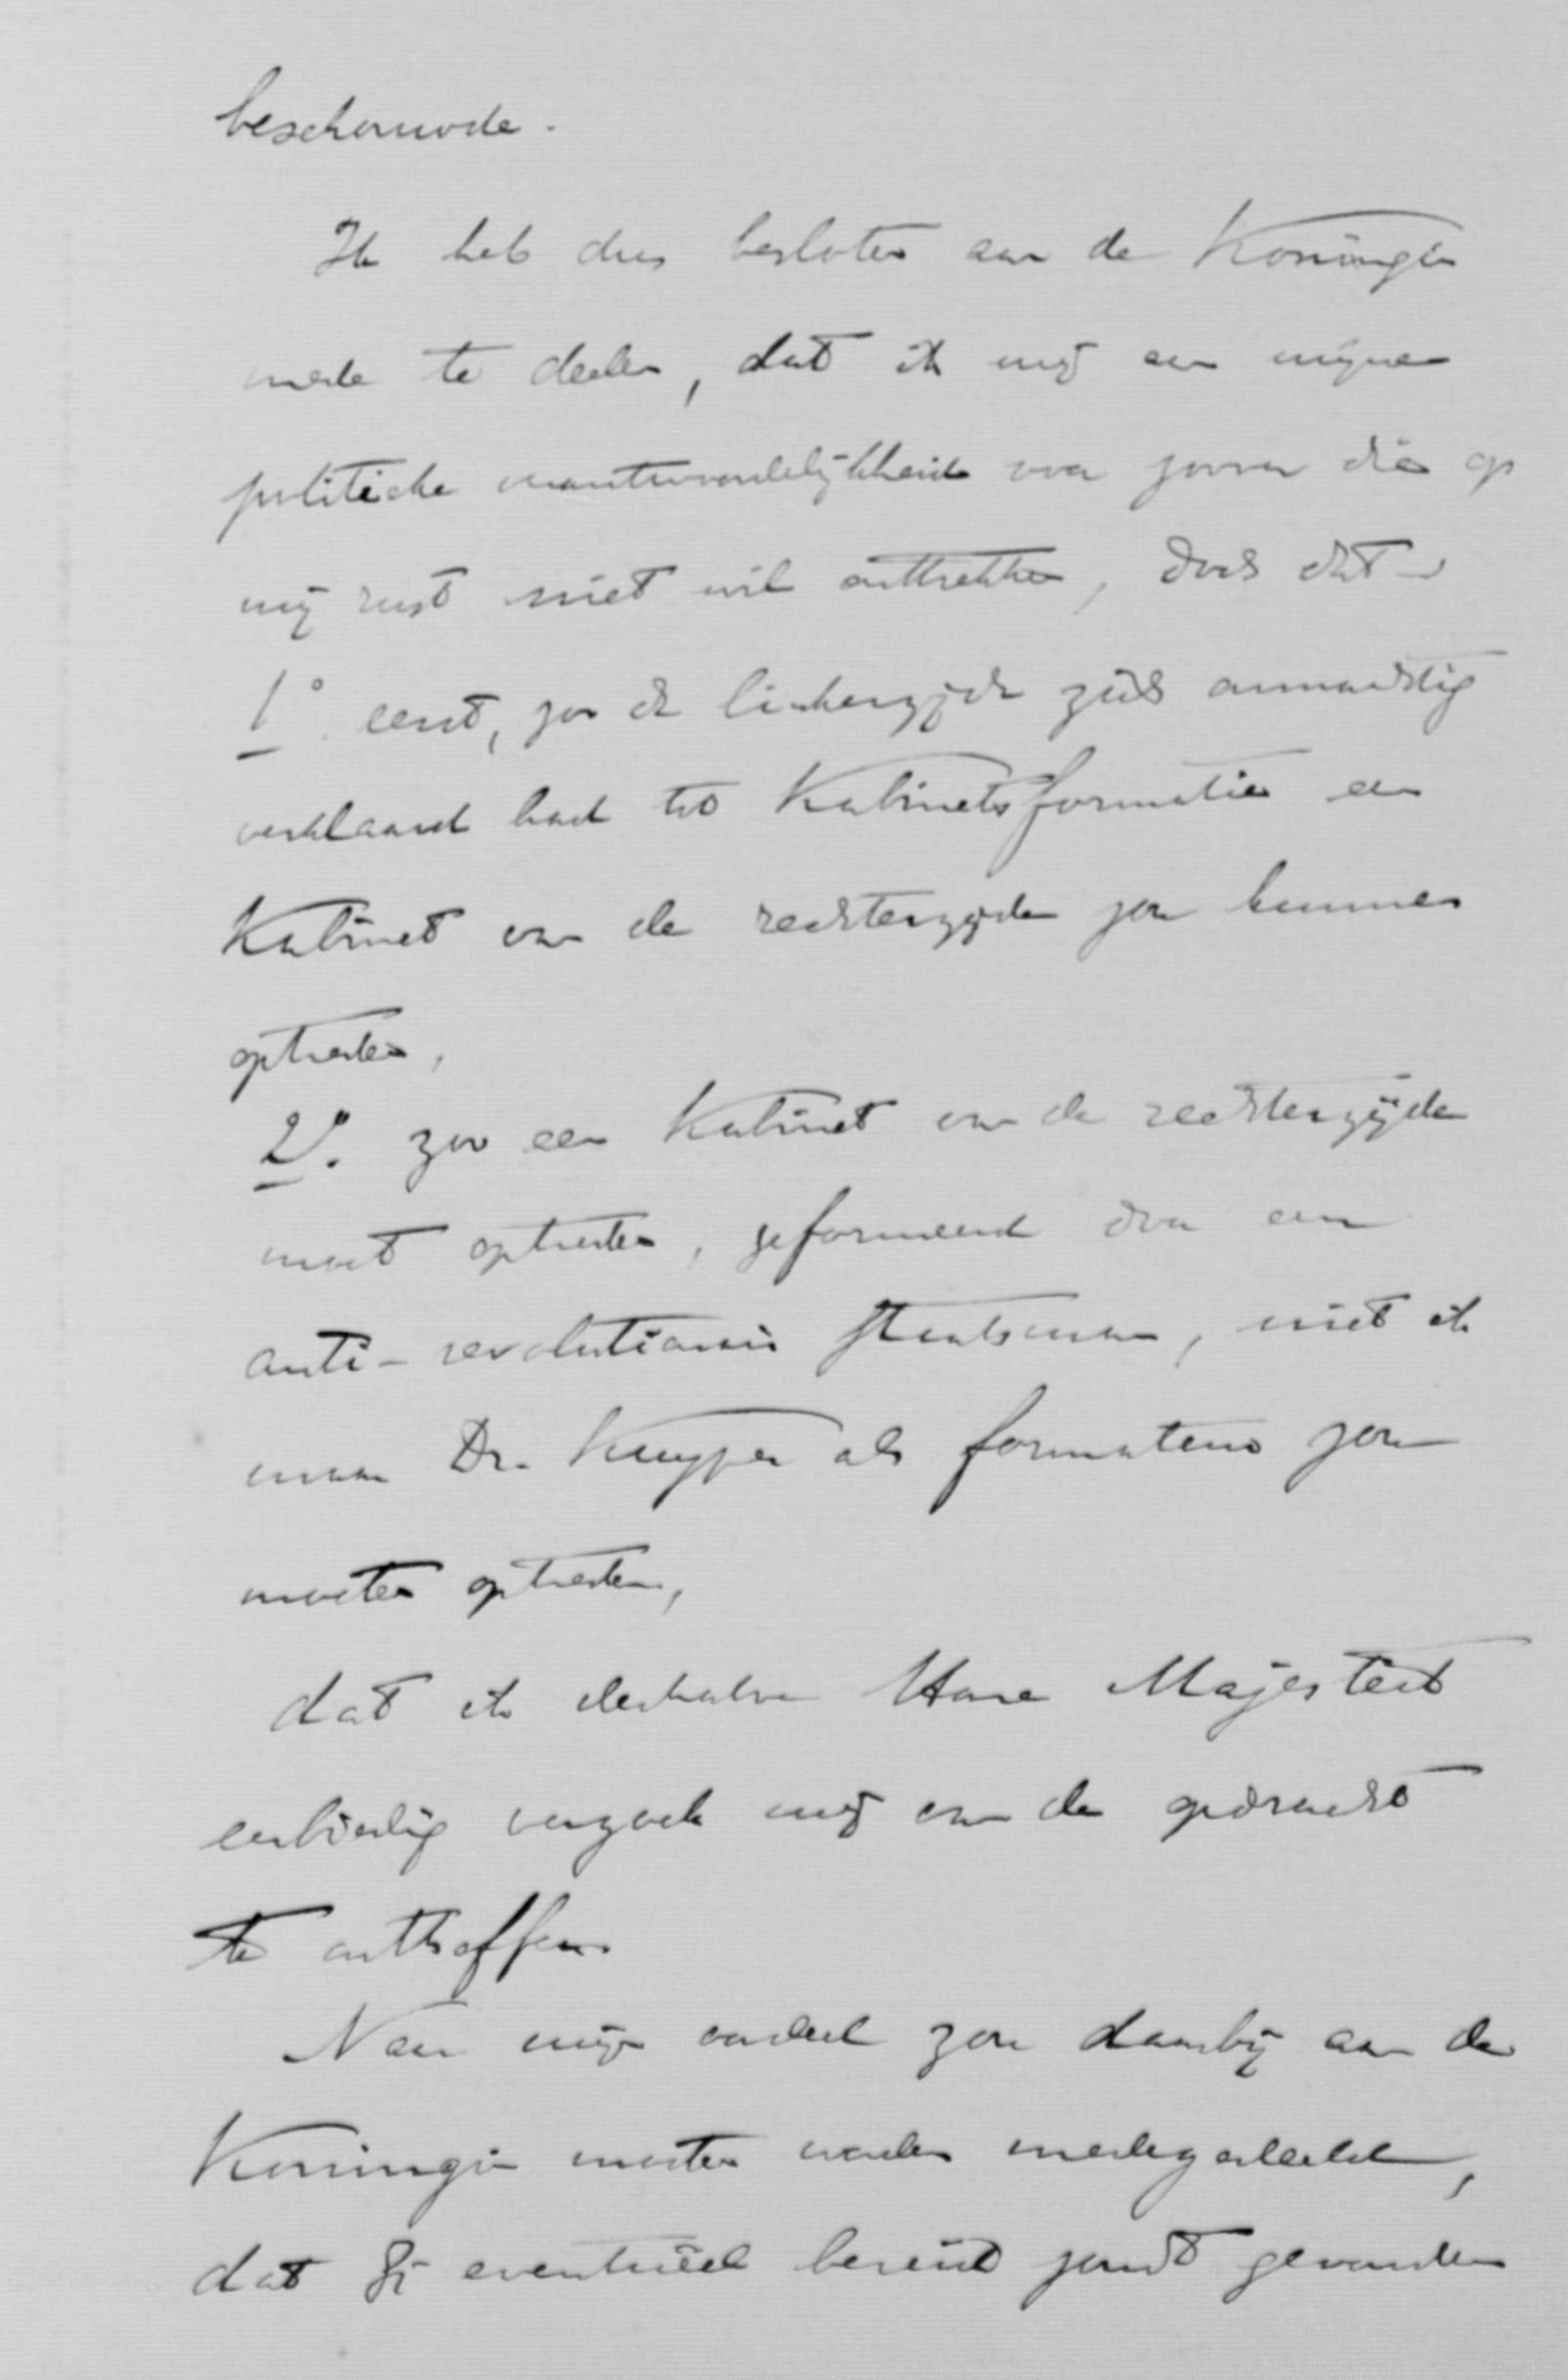 beschouwde.
Ik heb dus besloten aan de Koningin
mede te deelen, dat ik mij aan mijne
politieke verantwoordelijkheid voor zoover die op
mij rust niet wil onttrekken, doch dat
1° eerst, zoo de linkerzijde zich onmachtig
verklaard had tot Kabinetsformatie een
Kabinet van de rechterzijde zou kunnen
optreden,
2°. zoo een Kabinet van de rechterzijde
moet optreden, geformeerd door een
anti-revolutionair staatsman, niet ik
maar Dr. Kuyper als formateur zou
moeten optreden,
dat ik derhalve Hare Majesteit
eerbiedig verzoek mij van de opdracht
te ontheffen.
Naar mijn oordeel zou daarbij aan de
Koningin moeten worden medegedeeld,
dat Gij eventueel bereid zoudt gevonden